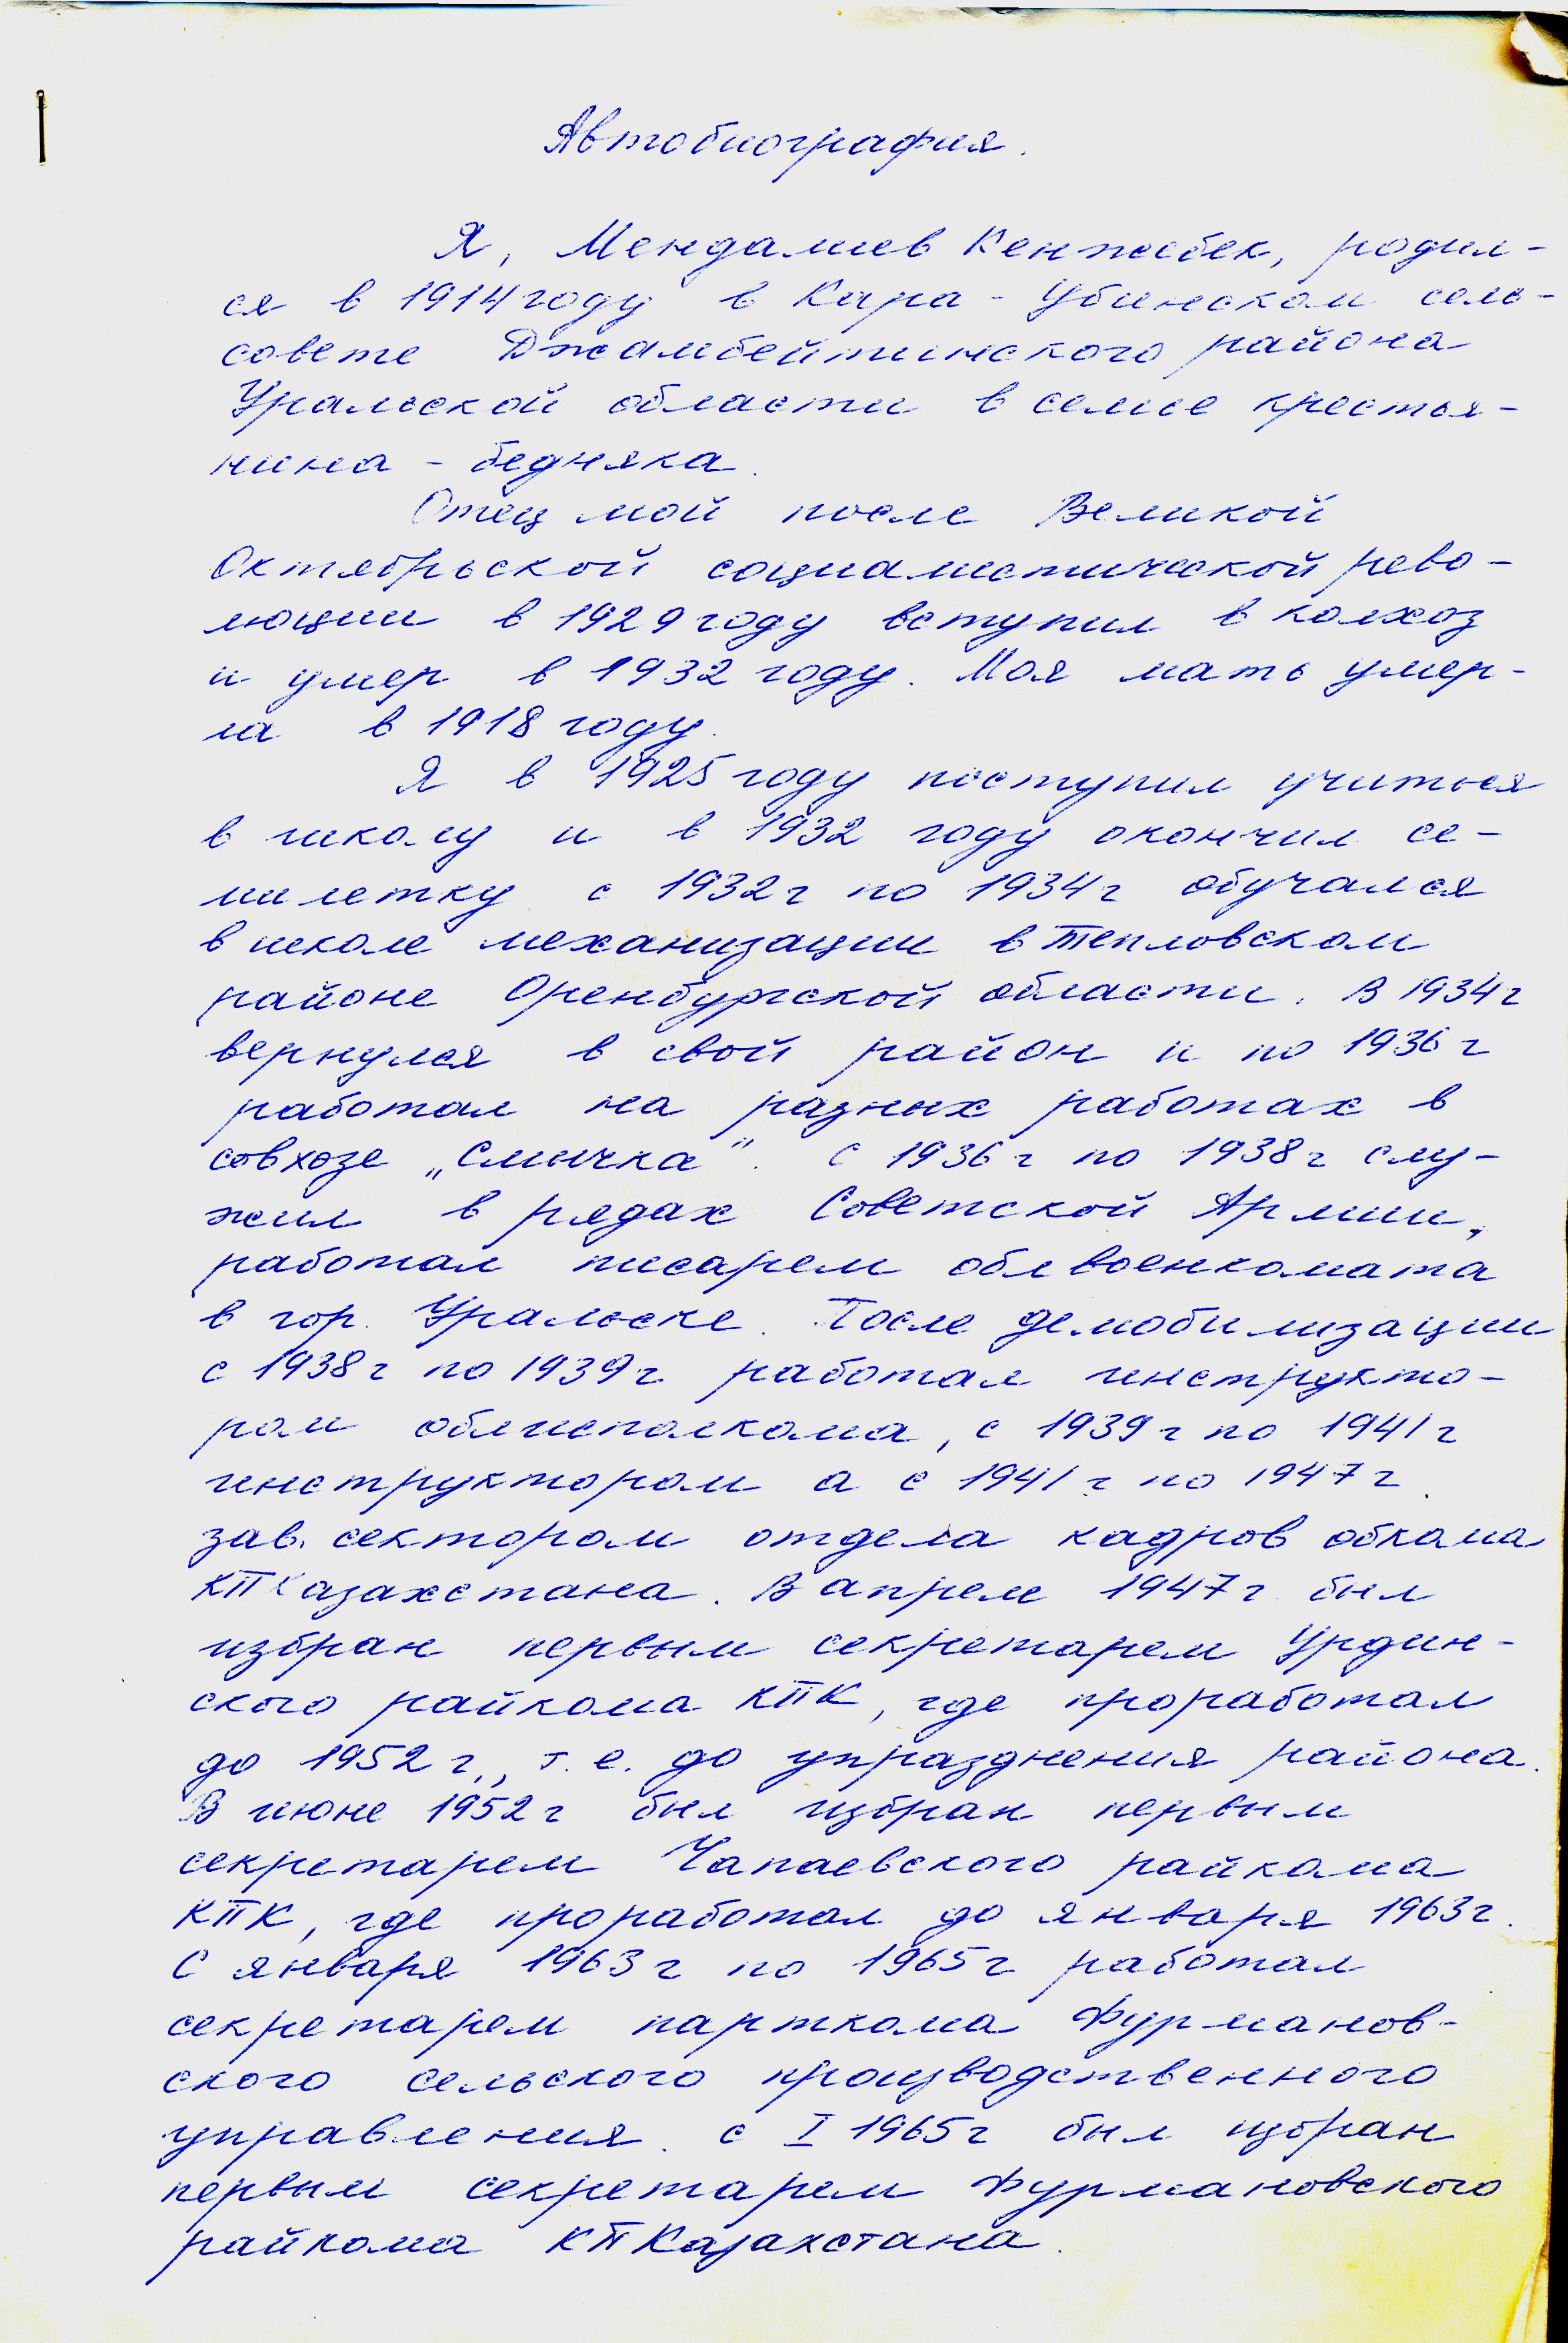 Автобиография.
Я, Мендалиев Кенжебек, родил-
ся в 1914 году в Кара-Убинском сель-
совете Джамбейтинского района
Уральской области в семье крестья-
нина - бедняка.
Отец мой после Великой
Октябрьской социалистической рево-
люции в 1929 году вступил в колхоз
и умер в 1932 году. Моя мать умер-
ла в 1918 году.
Я в 1925 году поступил учиться
в школу и в 1932 году окончил се-
милетку с 1932 г по 1934 г обучался
в школе механизации в Тепловском
районе Оренбургской области. В 1934 г
вернулся в свой район и по 1936 г
работал на разных работах в
совхозе „Смычка". С 1936 г по 1938 г слу-
жил в рядах Советской Армии,
работал писарем облвоенкомата
в гор. Уральске. После демобилизации
с 1938 г по 1939 г. работал инструкто-
ром облисполкома, с 1939 г по 1941 г
инструктором а с 1941 г по 1947 г.
зав. сектором отдела кадров обкома
КПКазахстана. В апреле 1947 г был
избран первым секретарем Урдин-
ского райкома КПК, где проработал
до 1952 г., т.е. до упразднения района.
В июне 1952 г был избран первым
секретарем Чапаевского райкома
КПК, где проработал до января 1963 г.
С января 1963 г по 1965 г работал
секретарем парткома Фурманов-
ского сельского производственного
управления. с I 1965 г был избран
первым секретарем Фурмановского
райкома КПКазахстана.